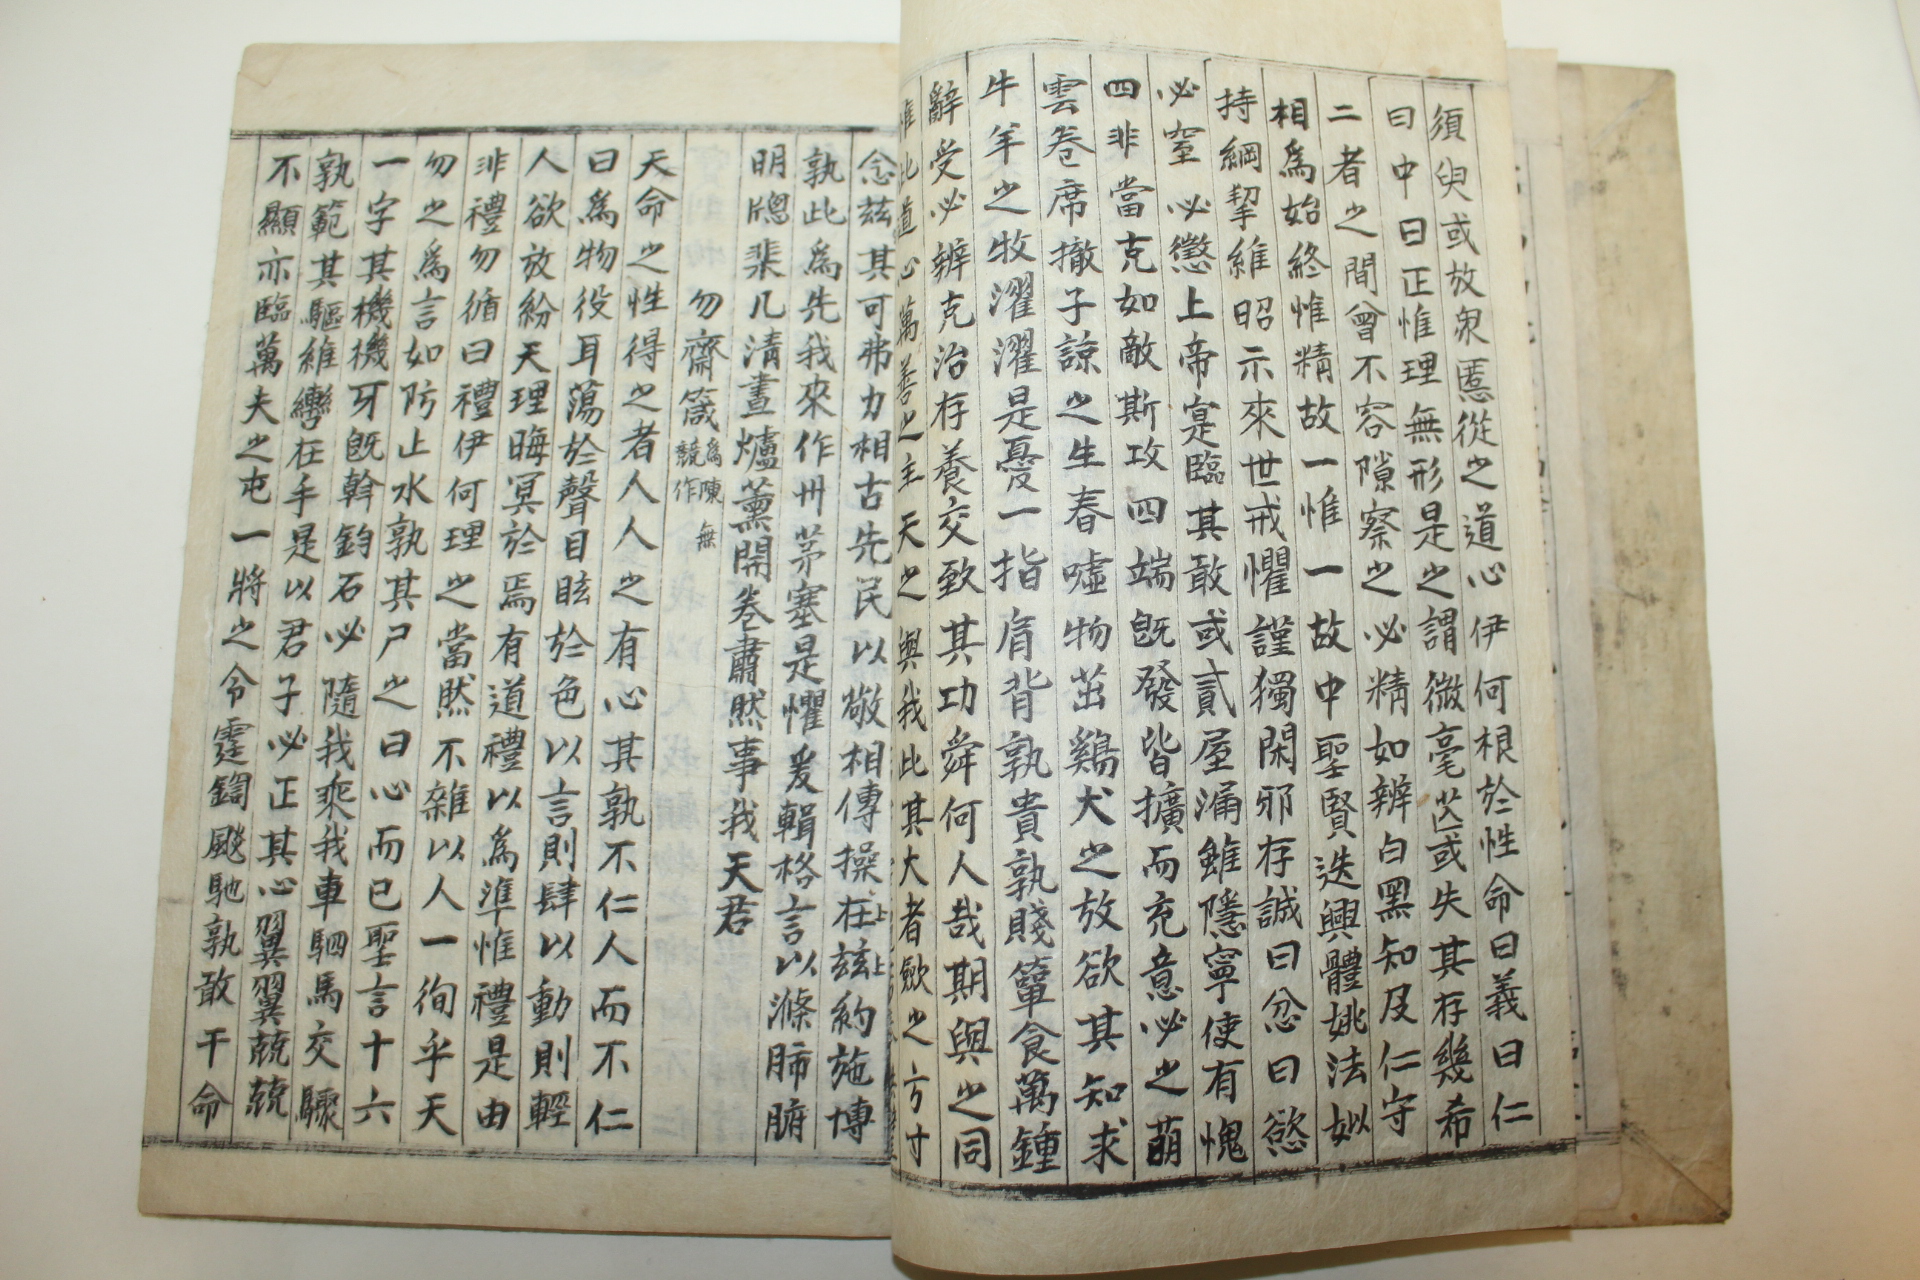 須臾或放衆慝從之道心伊何根於性命曰義曰仁
曰中曰正惟理無形是之謂微毫芒或失其存幾希
二者之間曾不容隙察之必精如辨白黑知及仁守
相爲始終惟精故一惟一故中聖賢迭興體姚法姒
持綱挈維昭示來世戒懼謹獨閑邪存誠曰忿曰慾
必窒必懲上帝寔臨其敢或貳屋漏雖隱寧使有愧
四非當克如敵斯攻四端旣發皆擴而充意必之萌
雲卷席撤子諒之生春噓物茁鷄犬之放欲其知求
牛羊之牧濯濯是憂一指肩背孰貴孰賤簞食萬鍾
辭受必辨克治存養交致其功舜何人哉期與之同
維此道心萬善之主天之與我此其大者斂之方寸
念茲其可弗力相古先民以敬相傳操在上茲上約施博
孰此爲先我來作州茅塞是懼爰輯格言以滌肺腑
明牕棐几淸晝爐薰開卷肅然事我天君
勿齋箴 爲陳無
競作
天命之性得之者人人之有心其孰不仁人而不仁
曰爲物役耳蕩於聲目眩於色以言則肆以動則輕
人欲放紛天理晦冥於焉有道禮以爲準惟禮是由
非禮勿循曰禮伊何理之當然不雜以人一徇乎天
勿之爲言如防止水孰其尸之曰心而已聖言十六
一字其機機牙旣斡鈞石必隨我乘我車駟馬交驟
孰範其驅維轡在手是以君子必正其心翼翼兢兢
不顯亦臨萬夫之屯一將之令霆鍧飈馳孰敢干命